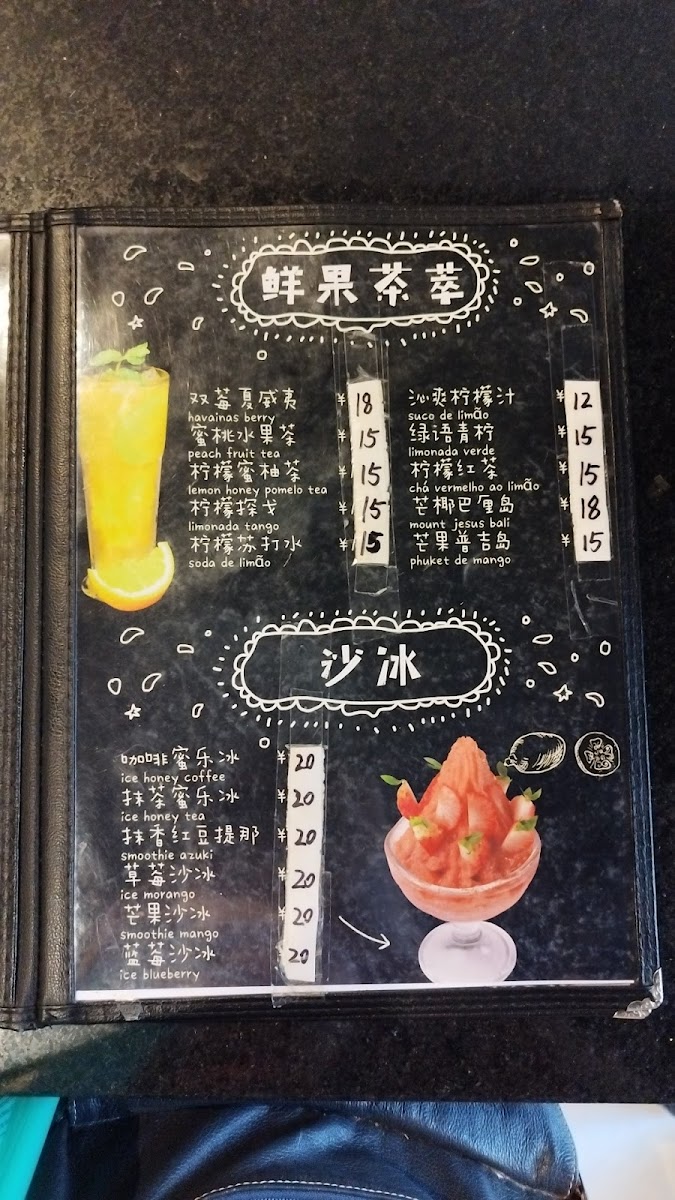 鲜果茶萃
双莓夏威夷 ¥ 18
havainas berry
蜜桃水果茶 ¥ 15
peach fruit tea
柠檬蜜柚茶 ¥ 15
lemon honey pomelo tea
柠檬探戈 ¥ 15
limonada tango
柠檬苏打水 ¥ 15
soda de limão
沁爽柠檬汁 ¥ 12
suco de limão
绿语青柠 ¥ 15
limonada verde
柠檬红茶 ¥ 15
chá vermelho ao limão
芒椰巴厘岛 ¥ 18
mount jesus bali
芒果普吉岛 ¥ 15
phuket de mango
沙冰
咖啡蜜乐冰 ¥ 20
ice honey coffee
抹茶蜜乐冰 ¥ 20
ice honey tea
抹香红豆提那 ¥ 20
smoothie azuki
草莓沙冰 ¥ 20
ice morango
芒果沙冰 ¥ 20
smoothie mango
蓝莓沙冰 ¥ 20
ice blueberry